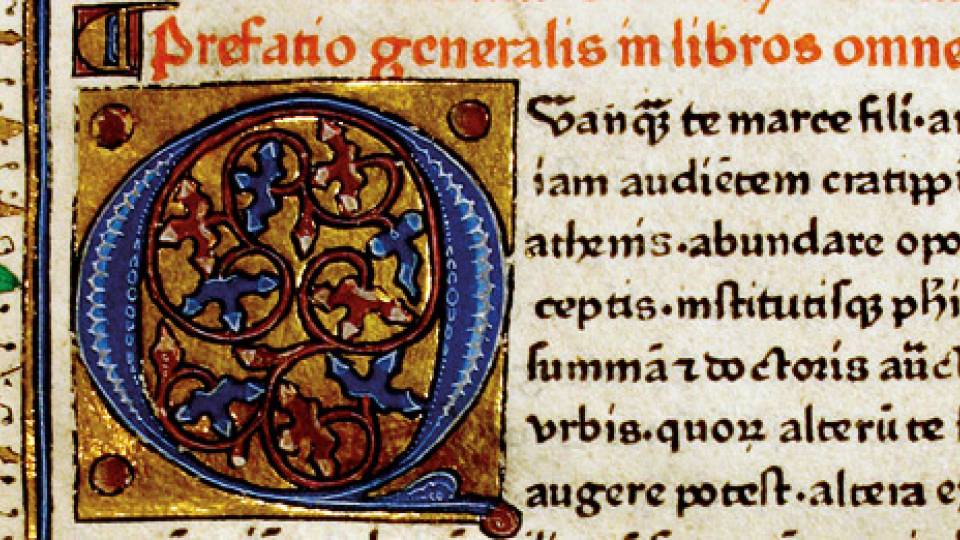 Prefatio generalis in libros omne
Qvanq̄ȝ te marce fili·an
iam audiētem cratipp
athenis·abundare opo
ceptis·institutisqȝ phi
summā ⁊ doctoris auct
vrbis·quoꝝ alterū te
augere potest·altera e